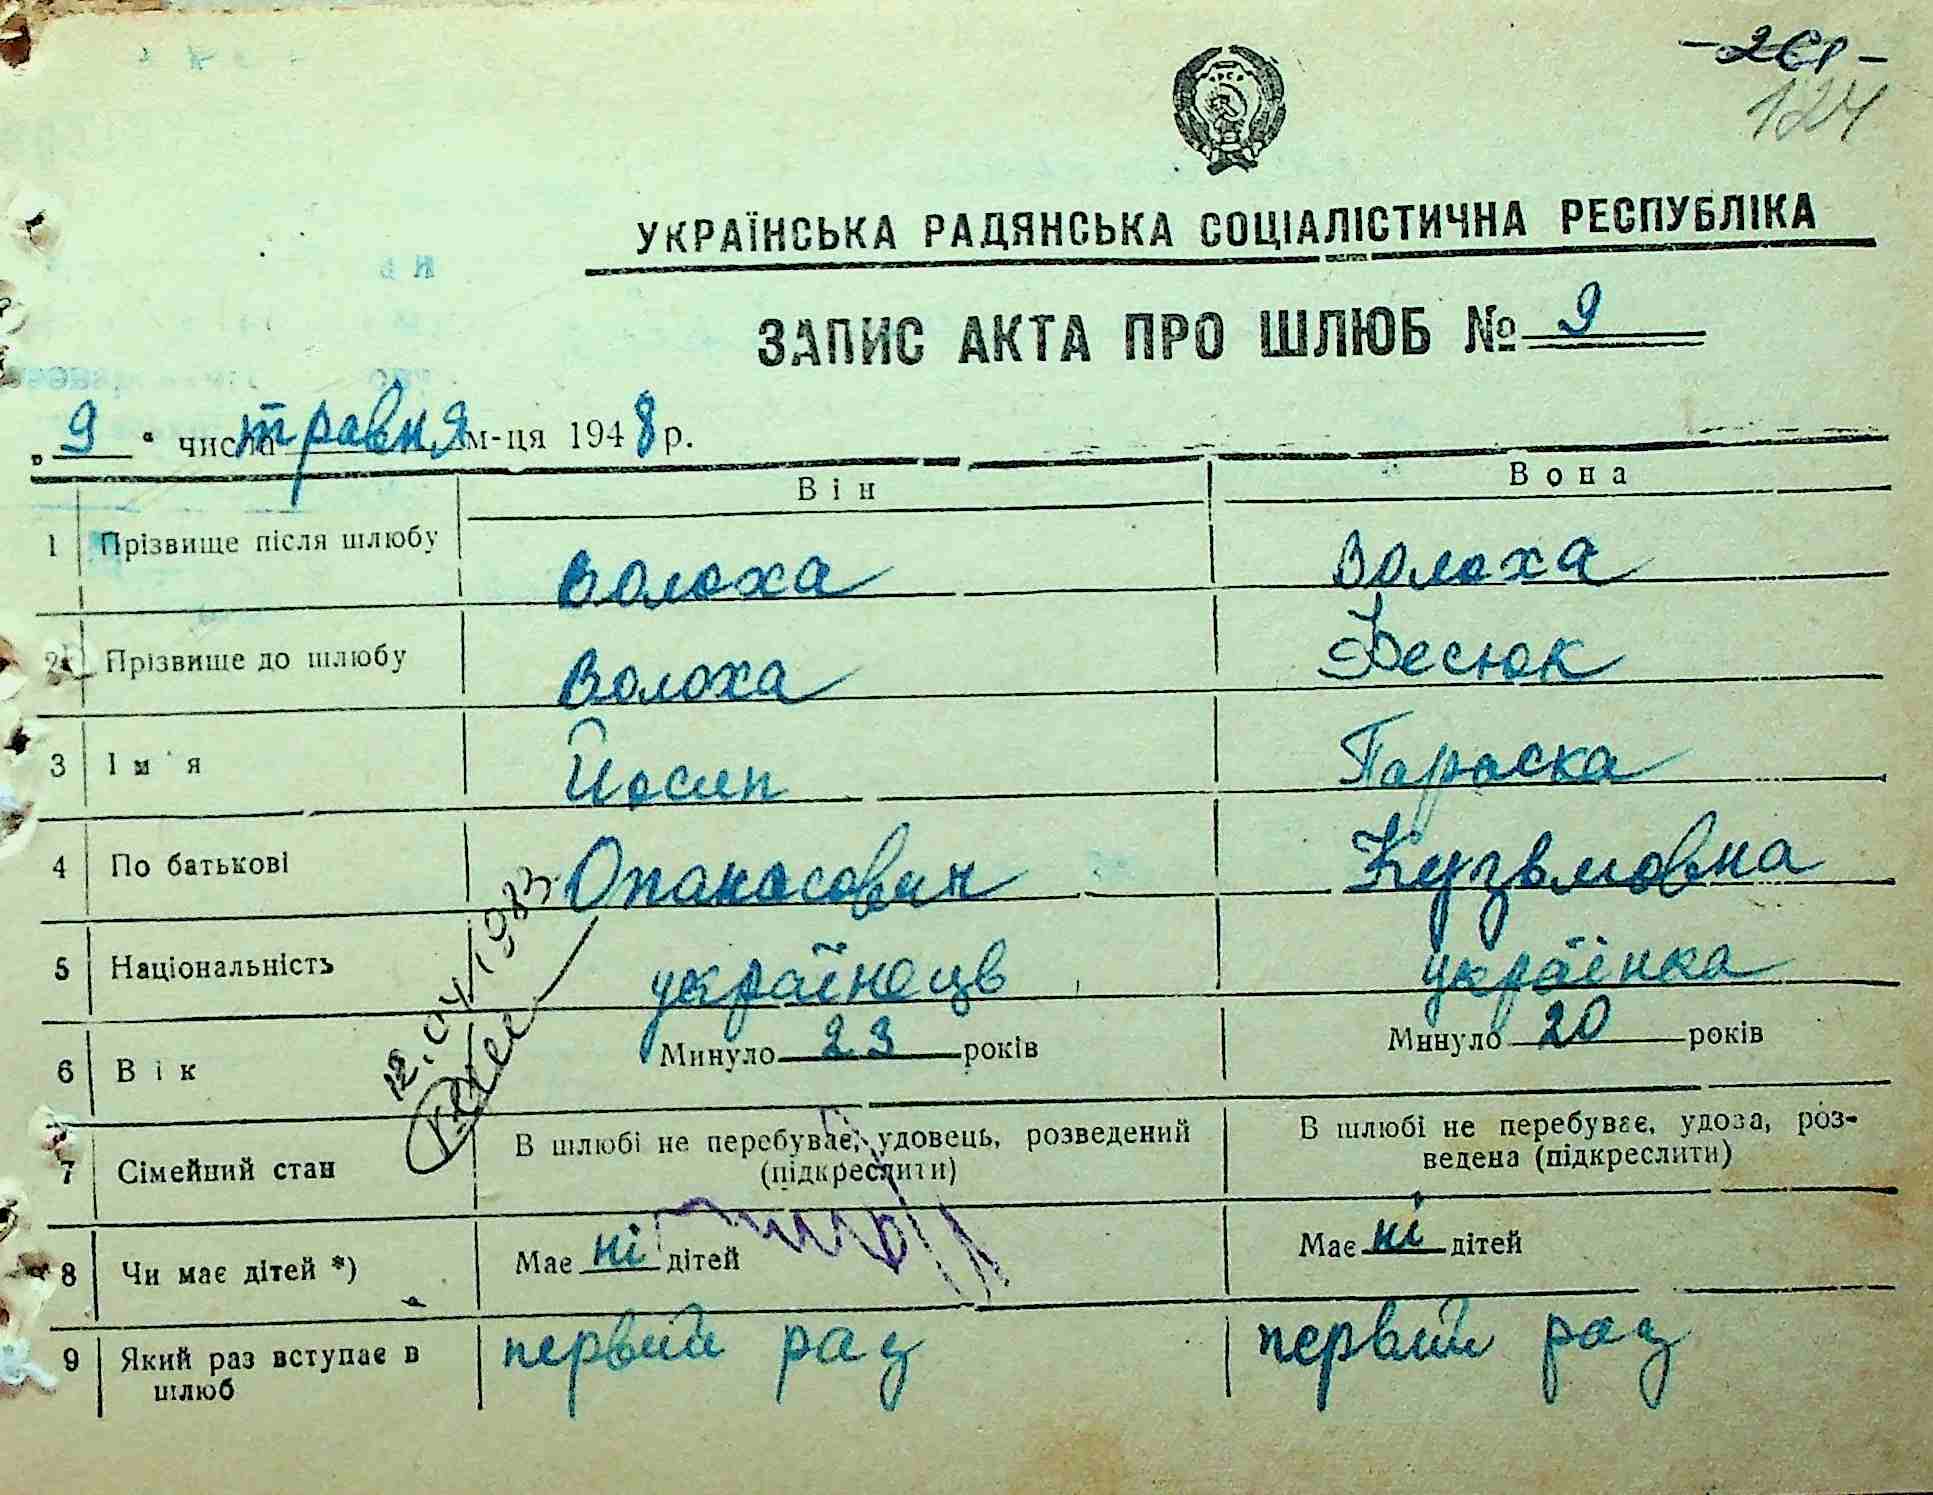 124
УКРАЇНСЬКА РАДЯНСЬКА СОЦІАЛІСТИЧНА РЕСПУБЛІКА
ЗАПИС АКТА ПРО ШЛЮБ № 9
„ 9 “ числа травня м-ця 1948 р.
Він Вона
1 Прізвище після шлюбу Волоха Волоха
2 Прізвище до шлюбу Волоха Фесюк
3 Ім'я Йосип Параска
4 По батькові Опанасович Кузьмовна
5 Національність українець українка
6 Вік Минуло 23 років Минуло 20 років
7 Сімейний стан В шлюбі не перебуває, удовець, розведений (підкреслити) В шлюбі не перебуває, удова, роз-
ведена (підкреслити)
8 Чи має дітей *) Має ні дітей Має ні дітей
9 Який раз вступає в первий раз первий раз
шлюб